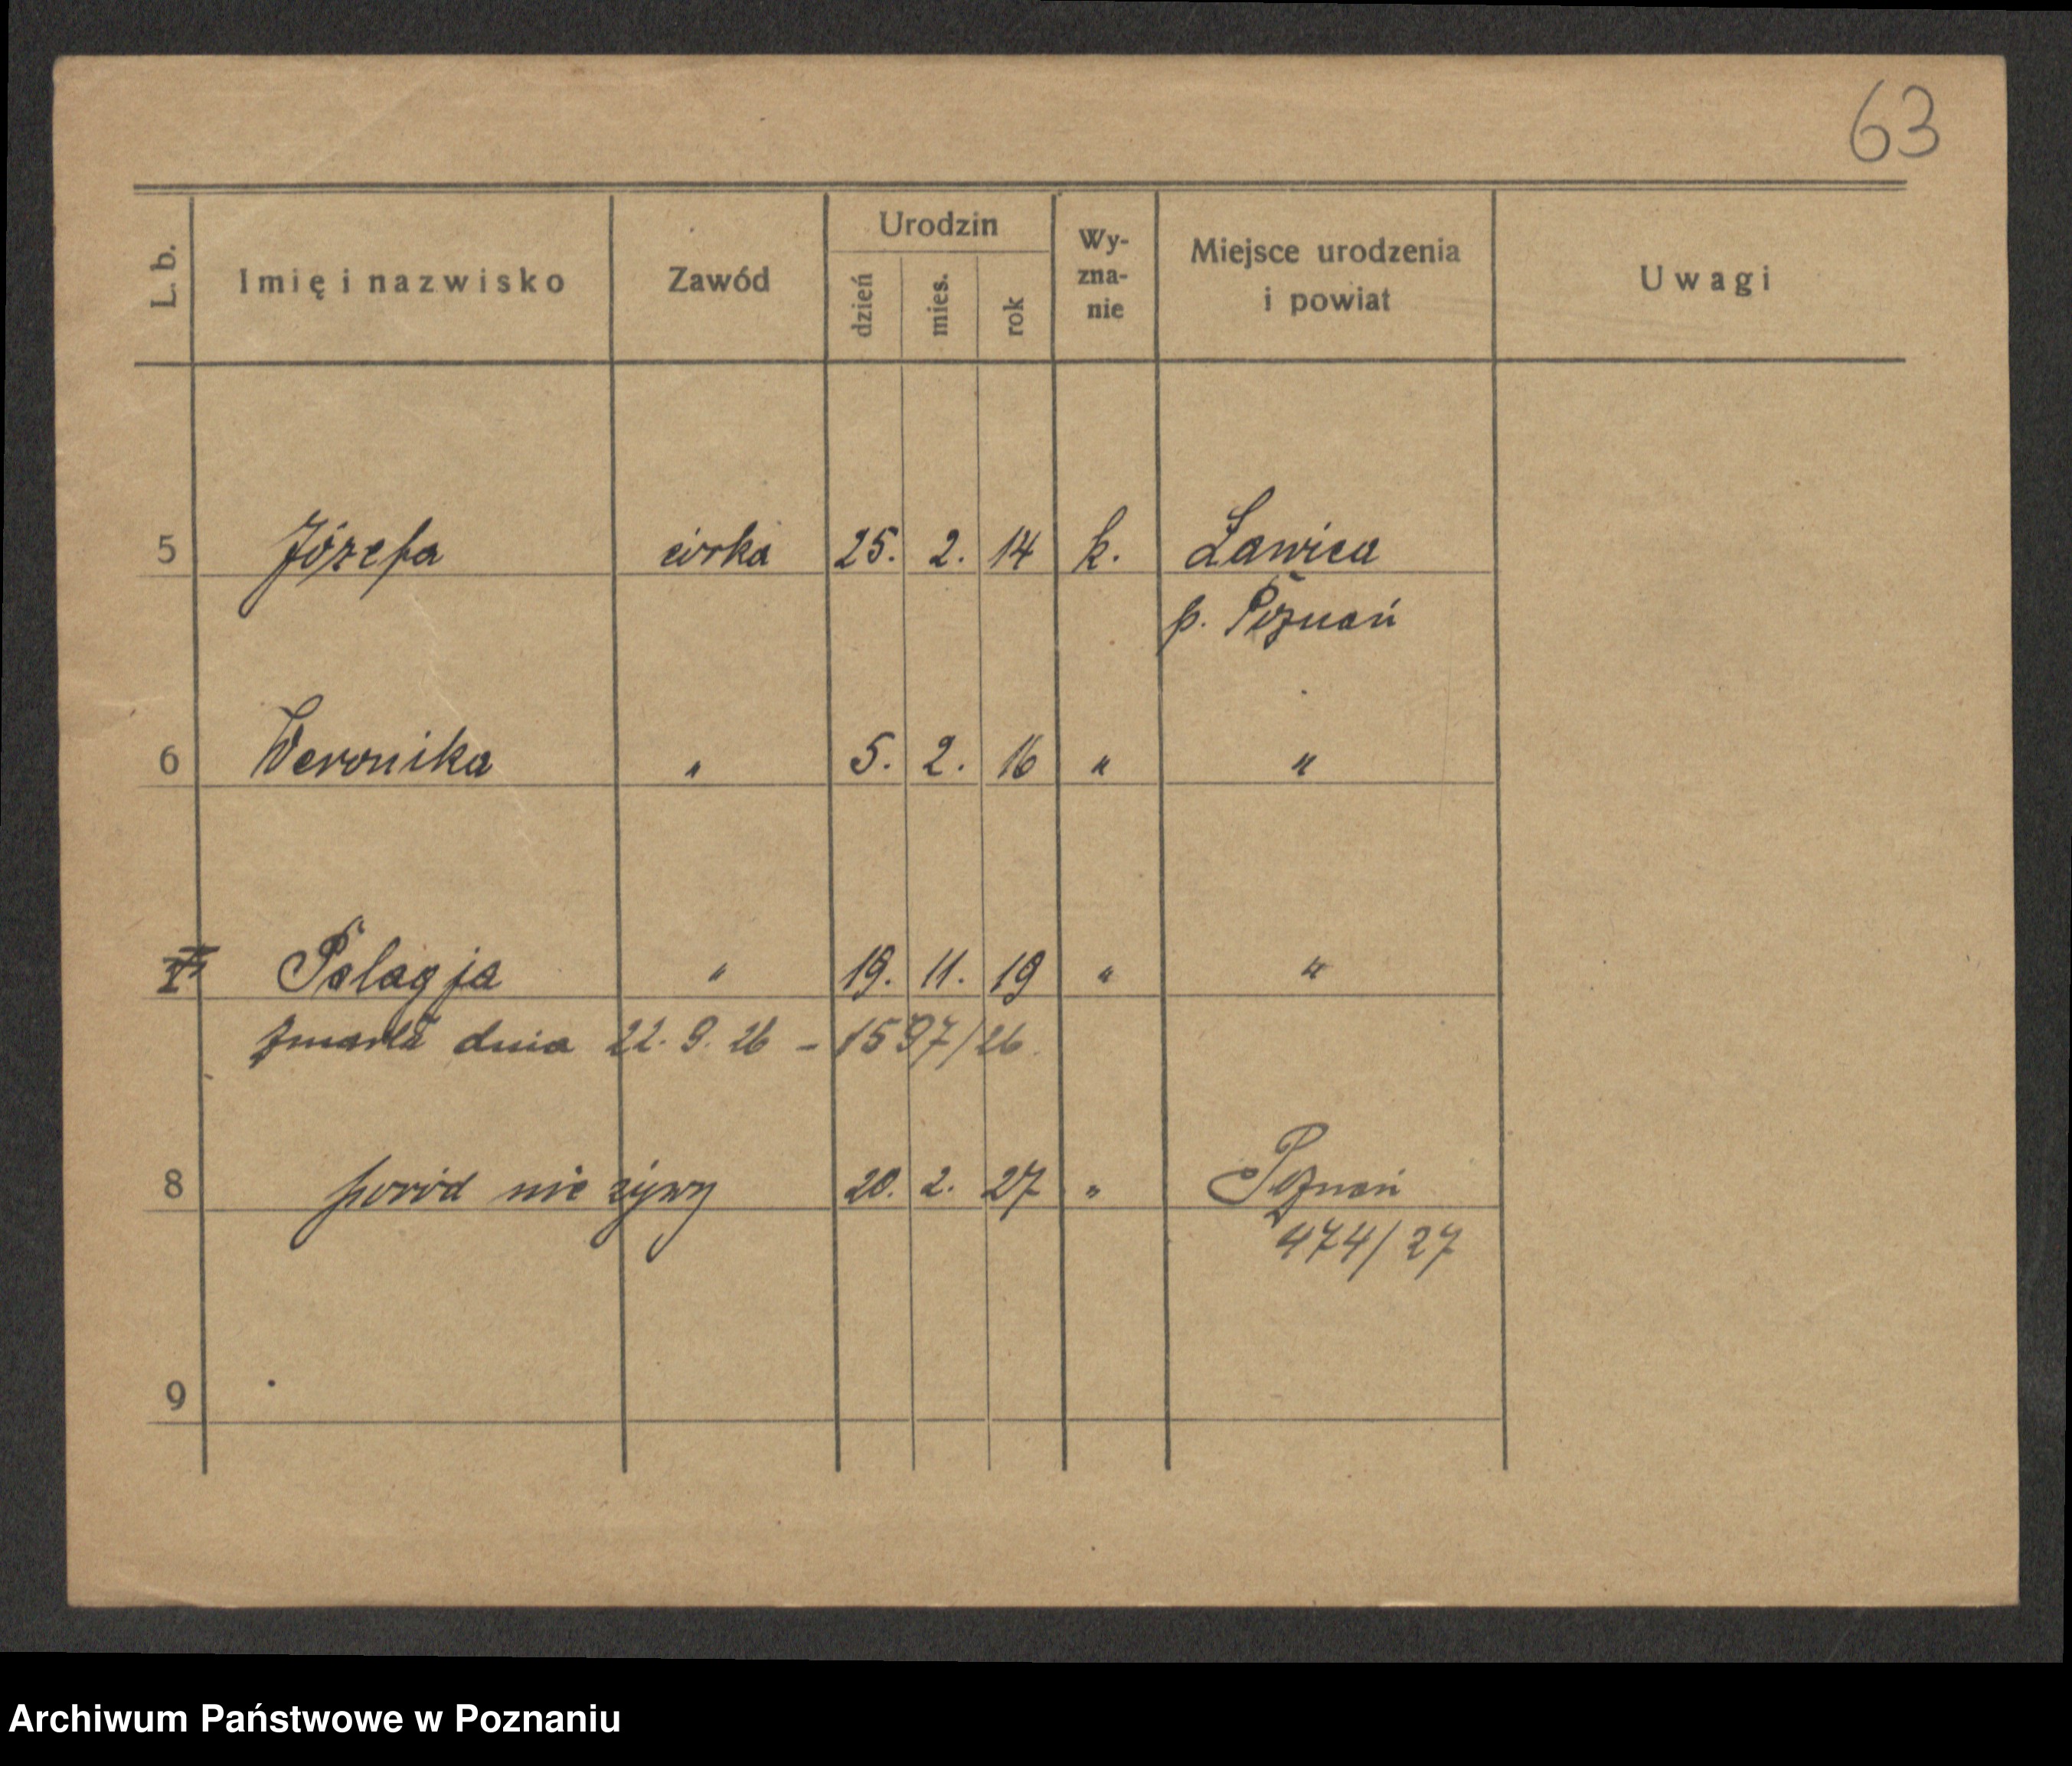 63
L. b.
Imię i nazwisko
Zawód
Urodzin
dzień mies. rok
Wy-
zna-
nie
Miejsce urodzenia
i powiat
Uwagi
5 Józefa córka 25. 2. 14 k. Ławica
p. Poznań
6 Weronika " 5. 2. 16 " "
Pelagja " 19. 11. 19 " "
zmarła dnia 22. 9. 26 - 1597/26.
8 poród nie żywy 20. 2. 27 " Poznań
474/27
9
Archiwum Państwowe w Poznaniu